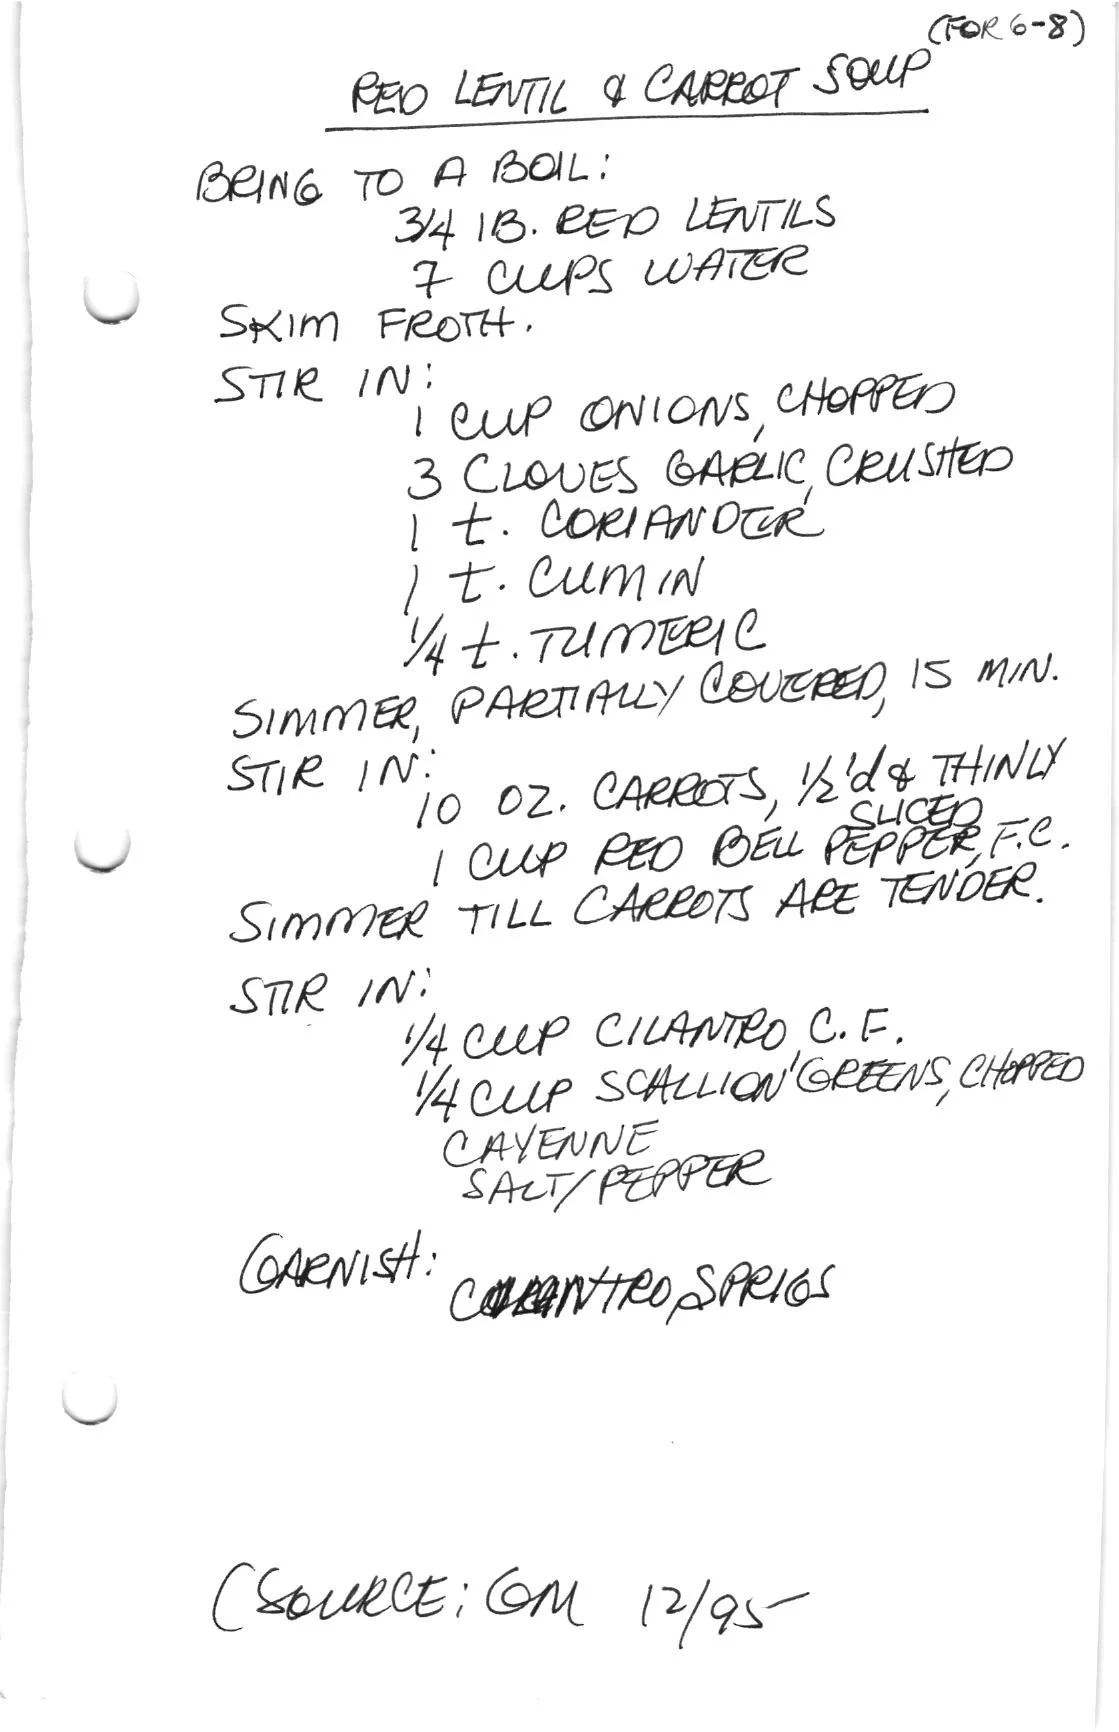 (FOR 6-8)
RED LENTIL & CARROT SOUP
BRING TO A BOIL:
3/4 lB. RED LENTILS
7 CUPS WATER
SKIM FROTH.
STIR IN:
1 CUP ONIONS, CHOPPED
3 CLOVES GARLIC, CRUSHED
1 t. CORIANDER
1 t. CUMIN
1/4 t. TUMERIC
SIMMER, PARTIALLY COVERED, 15 MIN.
STIR IN:
10 OZ. CARROTS, 1/2'd & THINLY
SLICED
1 CUP RED BELL PEPPER, F.C.
SIMMER TILL CARROTS ARE TENDER.
STIR IN:
1/4 CUP CILANTRO C.F.
1/4 CUP SCALLION GREENS, CHOPPED
CAYENNE
SALT/PEPPER
GARNISH:
CILANTRO SPRIGS
(SOURCE: GM 12/95